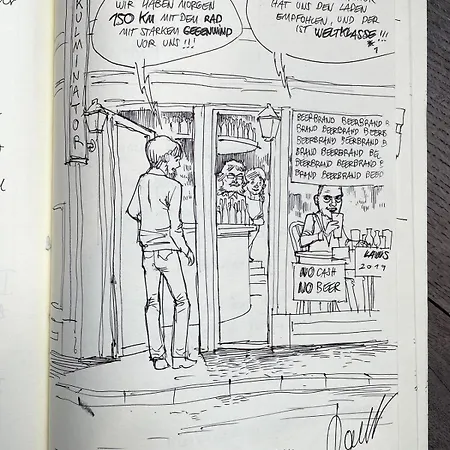 KULMINATOR
WIR HABEN MORGEN
150 KM MIT DEM RAD
MIT STARKEM GEGENWIND
VOR UNS!!!
HAT UNS DEN LADEN
EMPFOHLEN, UND DER
IST WELTKLASSE!!!
*1
BEERBRAND BEERBRAND B
BRAND BEERBRAND BEERB
BEERBRAND BEERBRAND B
BRAND BEERBRAND BEE
BEERBRAND BEERBRAND B
BRAND BEERBRAND BEEB
NO CASH
NO BEER
2019